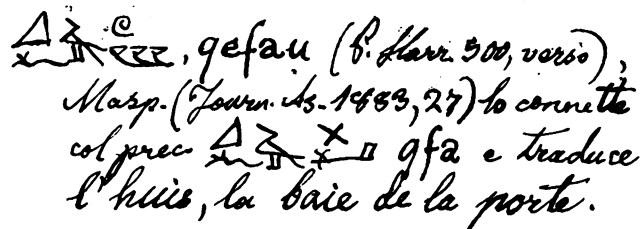 , qefau (P. Harr. 500, verso),
Masp. (Journ. As. 1883, 27) lo connette
col prec. qfa e traduce
l'huis, la baie de la porte.